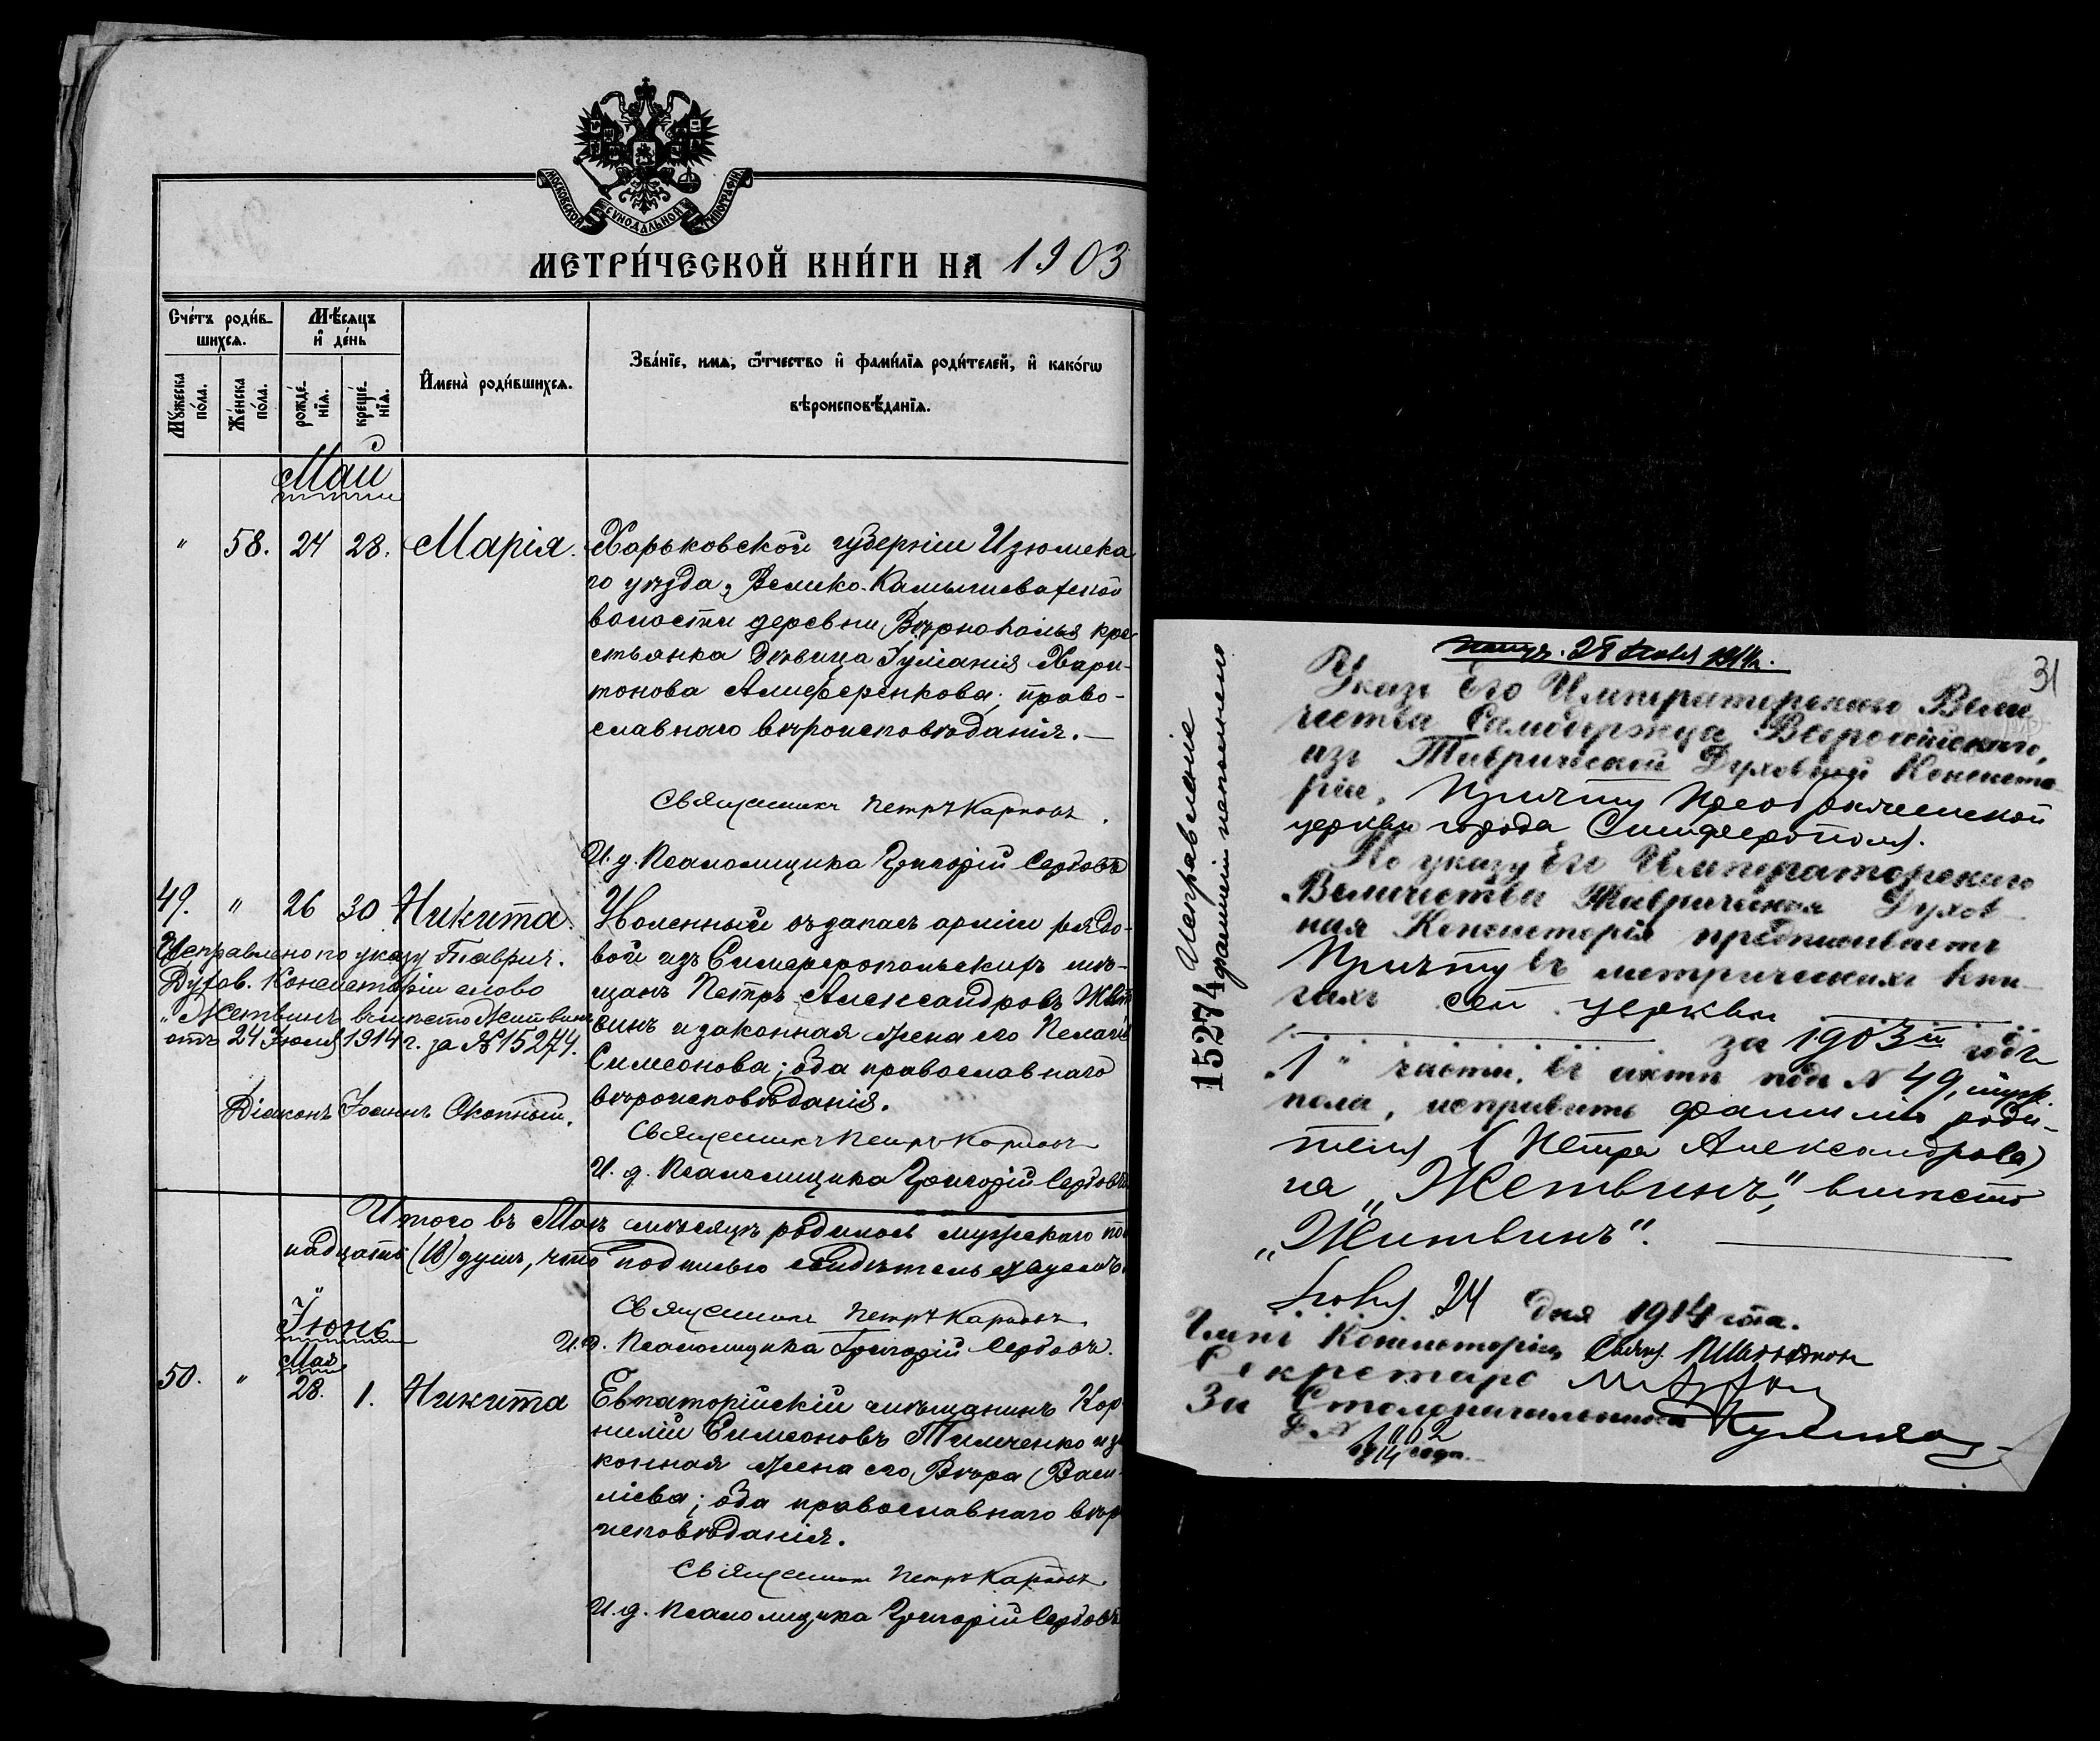 МОСКОВСКОЙ СѴНОДАЛЬНОЙ ТИПОГРАФІИ
МЕТРИ́ЧЕСКОЙ КНИ́ГИ НА 1903
Сче́тъ роди́в-
шихся.
Мѣ́сяцъ
и де́нь
Мꙋ́жеска
по́ла.
Же́нска
по́ла.
рожде́-
нїя.
креще́-
нїя.
Имена̀ роди́вшихся.
Зва́нїе, имя, ѻ҆́тчество и фами́лїя роди́телей, и како́гѡ
вѣроисповѣ́данїя.
Май
" 58. 24 28. Марія. Харьковской губерніи Изюмска
го уѣзда, Велико-Камышеватской
волости деревни Вѣрнополья кре
стьянка дѣвица Іуліанія Хари-
тонова Алиференкова; право-
славнаго вѣроисповѣданія. —
Священникъ Петръ Карповъ.
И. д. Псаломщика Григорій Сербовъ
49. " 26 30 Никита. Уволенный въ запасъ арміи рядо-
вой изъ Симферопольскихъ мѣ-
щанъ Петръ Александровъ Жит
винъ и законная жена его Пелагія
Симеонова; оба православнаго
вѣроисповѣданія.
Священникъ Петръ Карповъ
И. д. Псаломщика Григорій Сербовъ
Исправлено по указу Таврич.
Духов. Консисторіи слово
„Жетвинъ" вмѣсто Житвинъ
отъ 24 Іюля 1914 г. за № 15274.
Діаконъ Іоаннъ Окопный.
Итого въ Маѣ мѣсяцѣ родилось мужского по
надцать (18) душъ, что подписью свидѣтельствуемъ.
Священникъ Петръ Карповъ
И. д. Псаломщика Григорій Сербовъ.
Іюнь
Мая
50. " 28. 1. Никита Евпаторійскій мѣщанинъ Кор
нилій Симеоновъ Тимченко и за
конная жена его Вѣра Васи-
ліева; оба православнаго вѣро
исповѣданія.
Священникъ Петръ Карповъ.
И. д. Псаломщика Григорій Сербовъ
15274 Исправленіе
фамиліи исполнено
Получ. 28 Іюля 1914 г.
31
Указъ Его Императорскаго Вели
чества Самодержца Всероссійскаго,
изъ Таврической Духовной Консисто
ріи, Причту Преображенской
церкви города Симферополя.
По указу Его Императорскаго
Величества Таврическая Духов-
ная Консисторія предписываетъ
Причту въ метрическихъ кни-
гахъ сей церкви
за 1903й годъ
„1" части, въ актѣ подъ № 49, муж.
пола, исправить фамилію роди-
теля (Петра Александрова)
на „Жетвинъ", вмѣсто
„Житвинъ".
Іюля 24 дня 1914 года.
Членъ Консисторіи, Свящ.
Секретарь
За Столоначальника
1914 года.